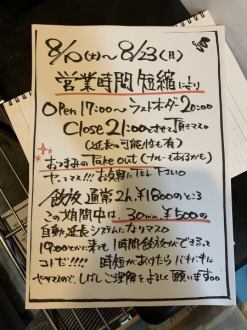 8/10(火)〜8/23(月)
営業時間短縮により
OPen 17:00〜ラストオーダー20:00
Close 21:00とさせて頂きマス。
(延長の可能性も有)
おつまみの Take out (フルーでもあるかも)
やってマス!!! お気軽にTEL下さい
飲放 通常2h、¥1800のところ
この期間中は 30min、¥500の
自動延長システムになりマス。
19:00とかに来ても1時間飲放ができるって
コトだ!!!! 時短があけたらバチバチに
やりマスので、しばしご理解をよろしく願いします。。